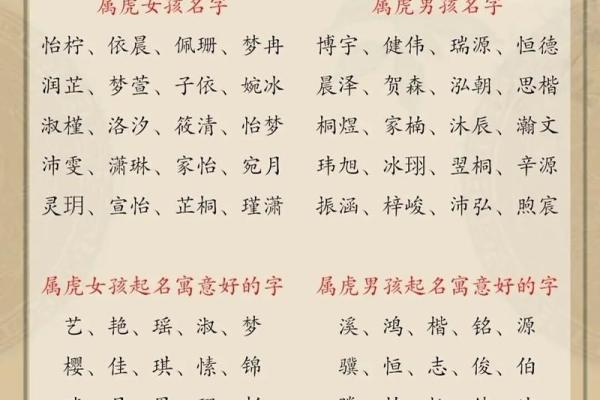 属虎女孩名字
怡柠、依晨、佩珊、梦冉
润芷、梦萱、子依、婉冰
淑槿、洛汐、筱清、怡梦
沛雯、潇琳、家怡、宛月
灵玥、宣怡、芷桐、瑾潇
属虎男孩名字
博宇、健伟、瑞源、恒德
晨泽、贺森、泓朝、思楷
桐煜、家楠、沐辰、瀚文
玮旭、冰珝、翌桐、辛源
振涵、梓峻、沛弘、煦宸
属虎女孩起名寓意好的字
艺、艳、瑶、淑、梦
樱、佳、琪、愫、锦
属虎男孩起名寓意好的字
溪、鸿、楷、铭、源
骥、恒、志、俊、伯